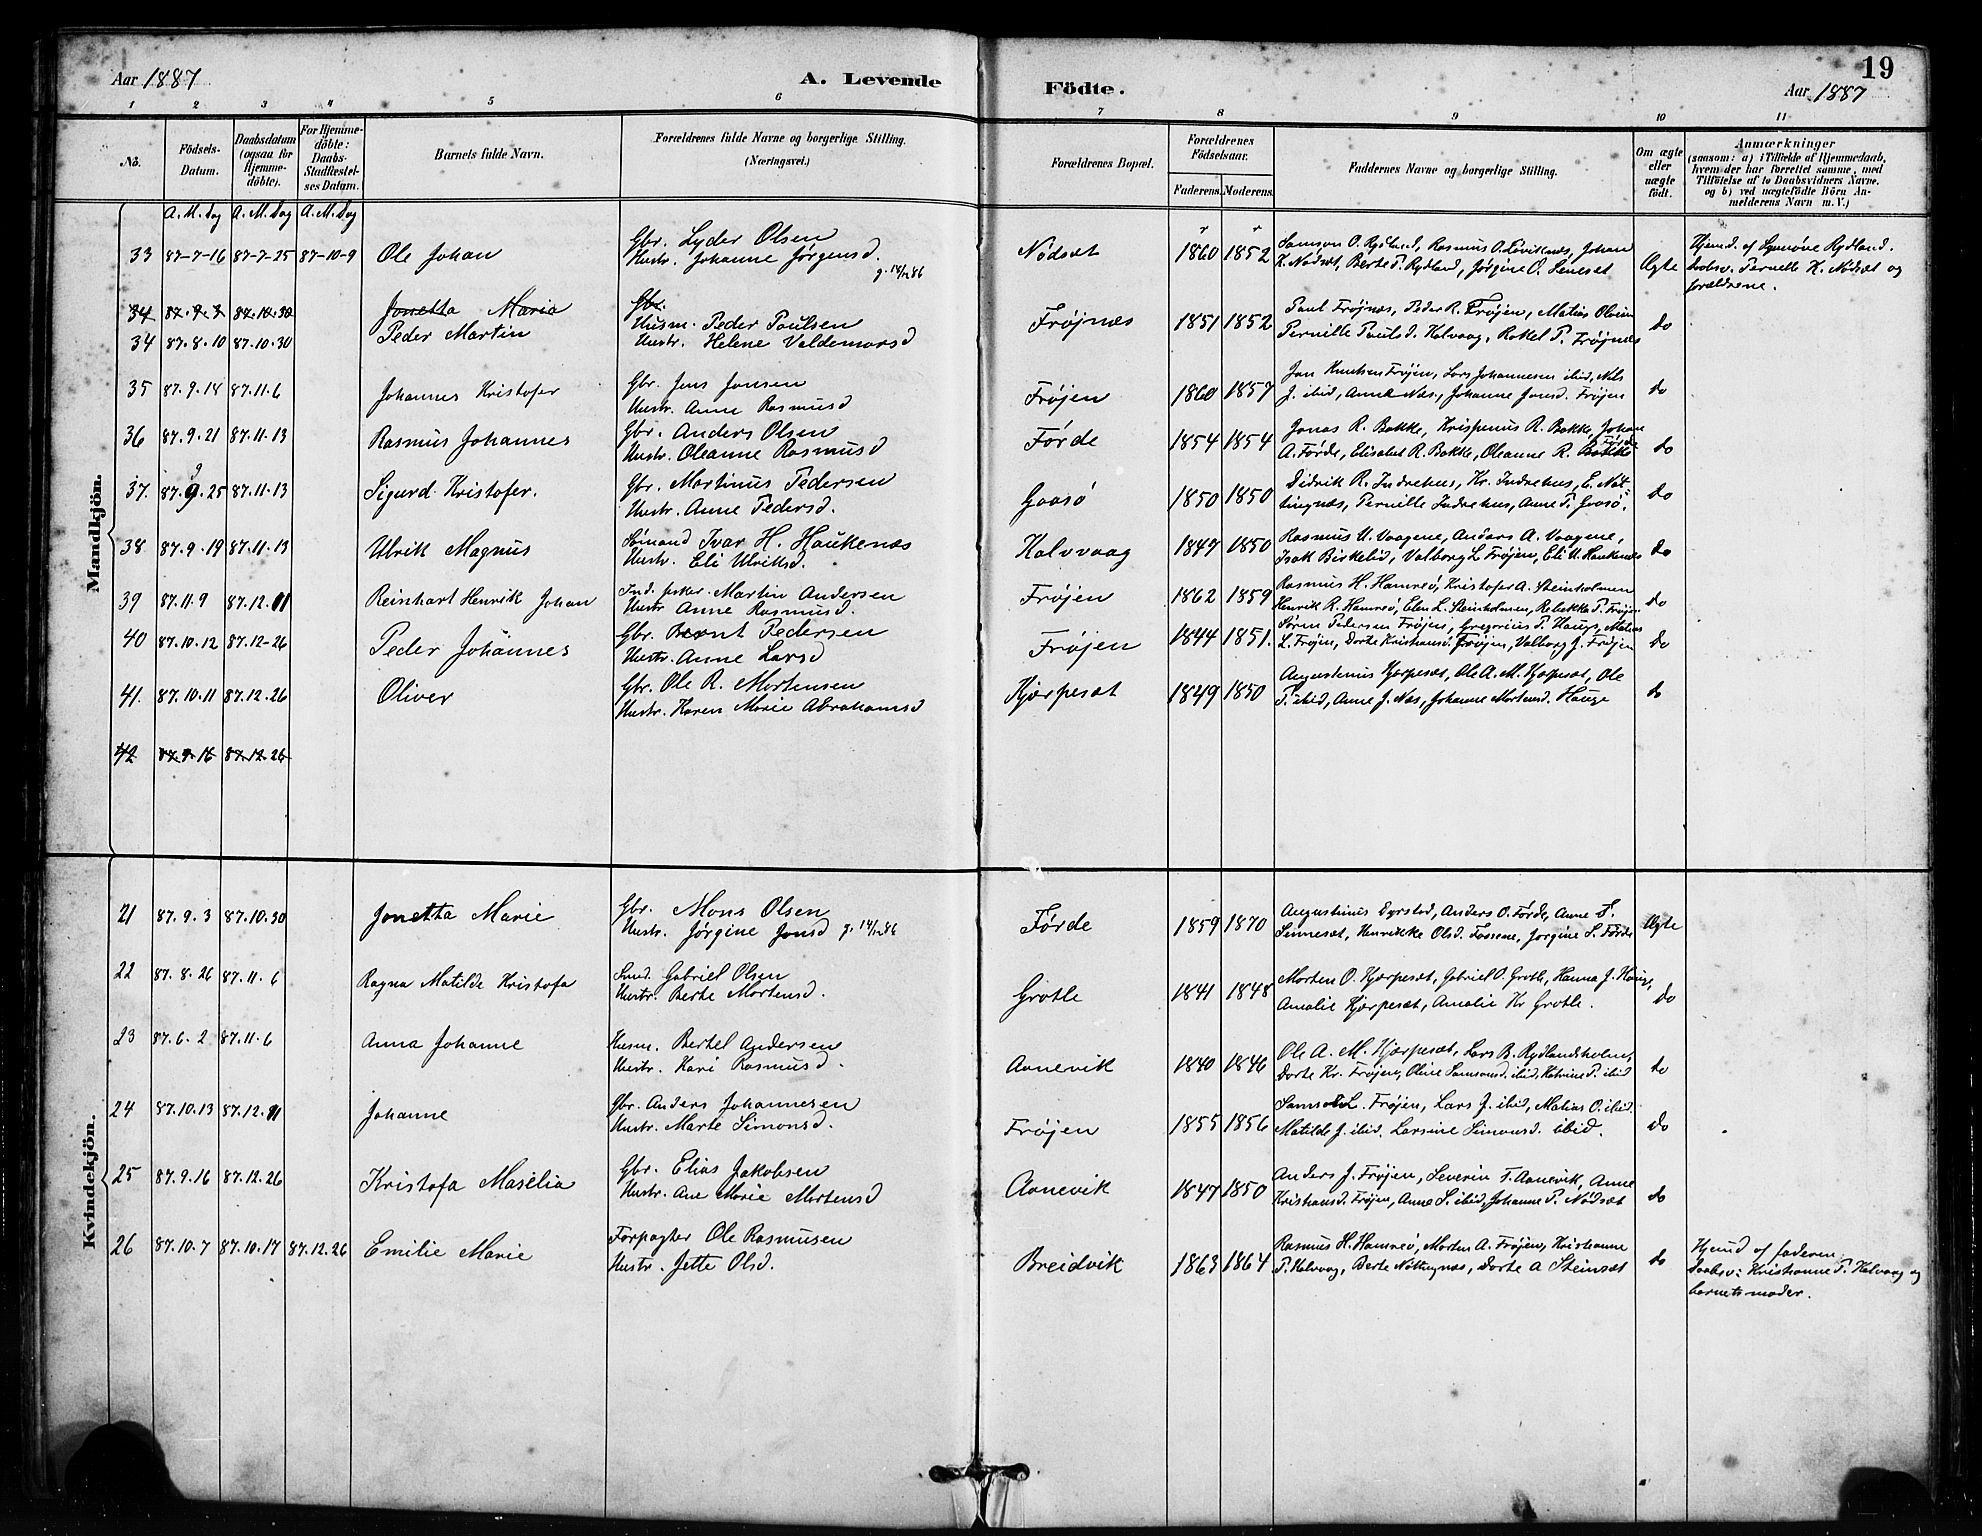 Aar 1887 A. Levende Födte. Aar 1887 19
1 2 3 4 5 6 7 8 9 10 11
No. Födsels-Datum. Daabsdatum (ogsaa for Hjemme-döbte). For Hjemme-döbte: Daabs-Stadfæstel-ses Datum. Barnets fulde Navn. Forældrenes fulde Navne og borgerlige Stilling. (Næringsvei.) Forældrenes Bopæl. Forældrenes Födselsaar. Faderens. Moderens. Faddernes Navne og borgerlige Stilling. Om ægte eller uægte födt. Anmærkninger (saasom: a) i Tilfælde af Hjemmedaab, hvem der har forrettet samme, med Tilföielse af to Daabsvidners Navne, og b) ved uægtefödte Börn An-melderens Navn m. V.)
A. M. Dag A. M. Dag A. M. Dag
Mandkjön.
33 87-7-16 87-7-25 87-10-9 Ole Johan Gbr. Lyder Olsen Nødsæt 1860 1852 Samson O. Rydland, Rasmus O. Løviknæs, Johan Ægte Hjemd. af Synnøve Rydland.
Hustr. Johanne Jørgensd. K. Nødsæt, Berte P. Rydland, Jørgine O. Leneset Daabsv. Pernelle K. Nødsæt og
forældrene.
34 87.9.3 87.10.30 Jonetta Marie Gbr.
34 87.8.10 87.10.30 Peder Martin Husm. Peder Poulsen Frøjnæs 1851 1852 Paul Frøjnæs, Peder R. Frøjen, Matias Olsen do
Hustr. Helene Valdemarsd Pernille Paulsd. Kalvaag, Rakel P. Frøjnæs
35 87.9.14 87.11.6 Johannes Kristofer Gbr. Jens Jonsen Frøjen 1860 1857 Jan Knutsen Frøjen, Lars Johannesen ibid, Nils do
Hustr. Anne Rasmusd J. ibid, Anne Næs, Johanne Jonsd. Frøjen
36 87.9.21 87.11.13 Rasmus Johannes Gbr. Anders Olsen Førde 1854 1854 Jonas R. Bakke, Krispenus R. Bakke, Johan do
Hustr. Oleanne Rasmusd A. Førde, Elisabet R. Bakke, Oleanne R. Førde
37. 87.9.25 87.11.13 Sigurd Kristofer. Gbr. Martinus Pedersen Gaasø 1850 1850 Didrik R. Indrehus, Kr. Indrehus, E. Nøt- do
Hustr. Anne Pedersd. tingnæs, Pernille Indrehus, Anne P. Gaasø.
38 87.9.19 87.11.13 Ulrik Magnus Sømand Ivar H. Haukenæs Kalvvaag 1847 1850 Rasmus U. Vaagene, Anders A. Vaagene, do
Hustr. Eli Ulriksd. Isak Birkelid, Valborg L. Frøjen, Eli U. Haukenæs
39 87.11.9 87.12.11 Reinhart Henrik Johan Ind. fisker Martin Andersen Frøjen 1862 1859 Rasmus H. Hamreø, Kristofer A. Steinholmen do
Hustr Anne Rasmusd. Henrik R. Hamreø, Elen L. Steinholmen, Rebekka P. Frøjen
40 87.10.12 87.12-26 Peder Johannes Gbr. Bernt Pedersen Frøjen 1844 1851. Søren Pedersen Frøjen, Gregorius P. Hauge, Matias do
Hustr. Anne Larsd L. Frøjen, Dorte Kristiansd. Frøjen, Valborg J. Frøjen
41. 87.10.11 87.12.26 Oliver Gbr. Ole R. Mortensen Hjørpesæt 1849 1850 Augustinus Hjørpesæt, Ole A. M. Hjørpesæt, Ole do
Hustr. Karen Marie Abrahamsd P. ibid, Anne J. Næs, Johanne Mortensd. Hauge
42 87.9.16 87.12.26
Kvindekjön.
21 87.9.3 87.10.30 Jonetta Marie Gbr. Mons Olsen Førde 1859 1870 Augustinus Dyrstad, Anders O. Førde, Anne S. Ægte
Hustr. Jørgine Jonsd Sennesæt, Henrikke Olsd. Fossene, Jørgine S. Førde
22 87.8.26 87.11.6 Ragna Matilde Kristofa Smd. Gabriel Olsen Grotle 1841 1848 Morten O. Hjørpesæt, Gabriel O. Grotle, Hanna J. Hauge, do
Hustr. Berte Mortensd. Amalie Hjørpesæt, Amalie Kr Grotle.
23 87.6.2 87.11.6 Anna Johanne Husm. Bertel Andersen Aanevik 1840 1846 Ole A. M. Hjørpesæt, Lars B. Rydlandsholm, do
Hustr. Kari Rasmusd. Dorte Kr. Frøjen, Oline Samsond. ibid, Katrine P. ibid
24 87.10.13 87.12.11 Johanne Gbr. Anders Johannesen Frøjen 1855 1856 Samson L. Frøjen, Lars J. ibid, Matias O. ibid. do
Hustr. Marte Simonsd. Matilde J. ibid. Larsine Simonsd. ibid.
25 87.9.16 87.12.26 Kristofa Maselia Gbr. Elias Jakobsen Aanevik 1847 1850 Anders J. Frøjen, Severin T. Aanevik, Anne do
Hustr. Ane Marie Mortensd Kristiansd. Frøjen, Anne S. ibid, Johanne P. Nødsæt
26 87.10.7 87.10.17 87.12.26 Emilie Marie Forpagter Ole Rasmusen Breidvik 1863 1864 Rasmus H. Hamreø, Morten A. Frøjen, Kristianne do Hjemd af faderen
Hustr. Jette Olsd. P. Kalvaag, Berte Nøttingnæs, Dorte A Steinsæt Daabsv: Kristianne P. Kalvaag og
barnets moder.